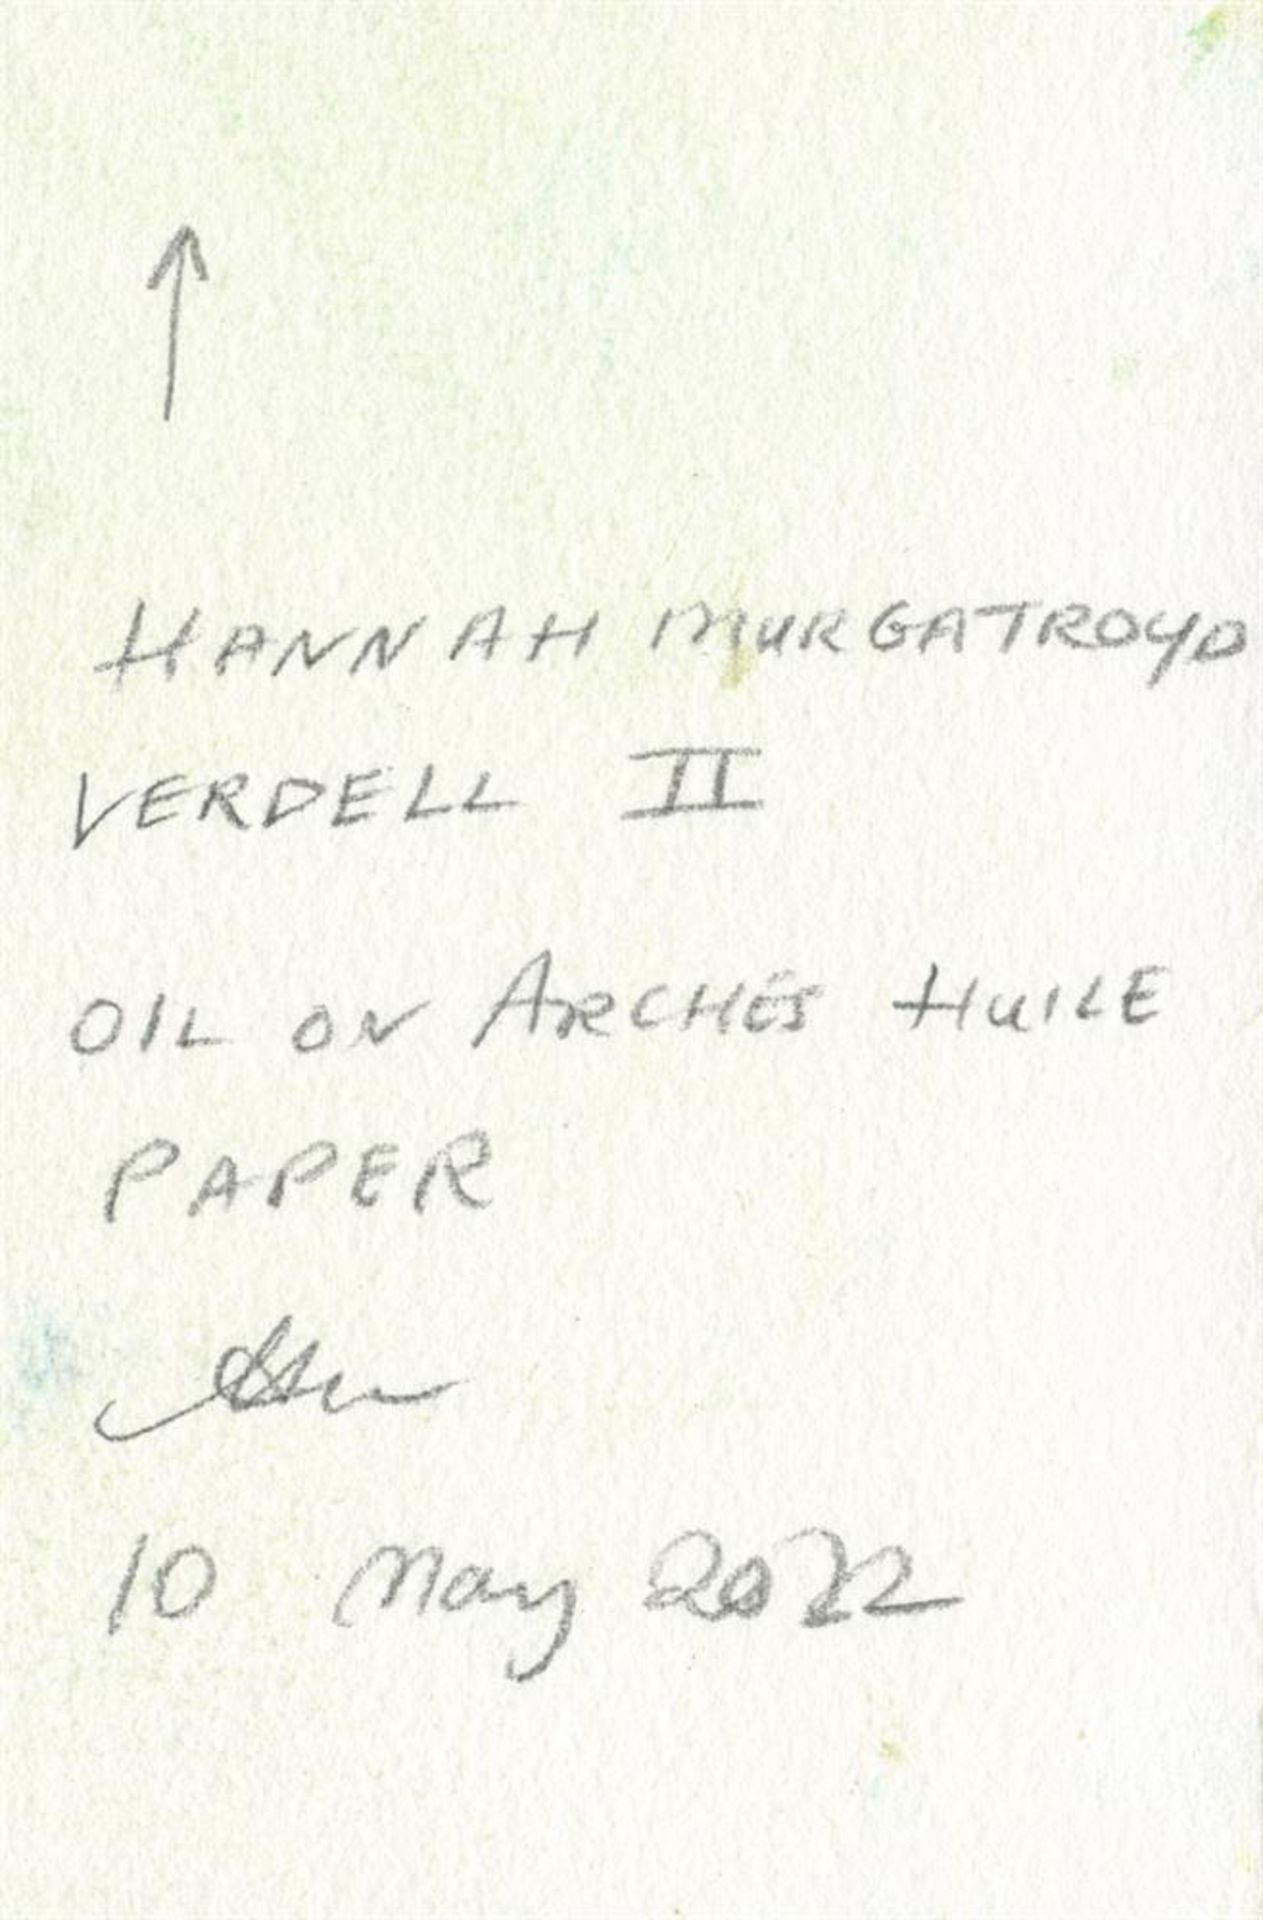 HANNAH MURGATROYD
VERDELL II
OIL ON ARCHES HUILE
PAPER
10 May 2022